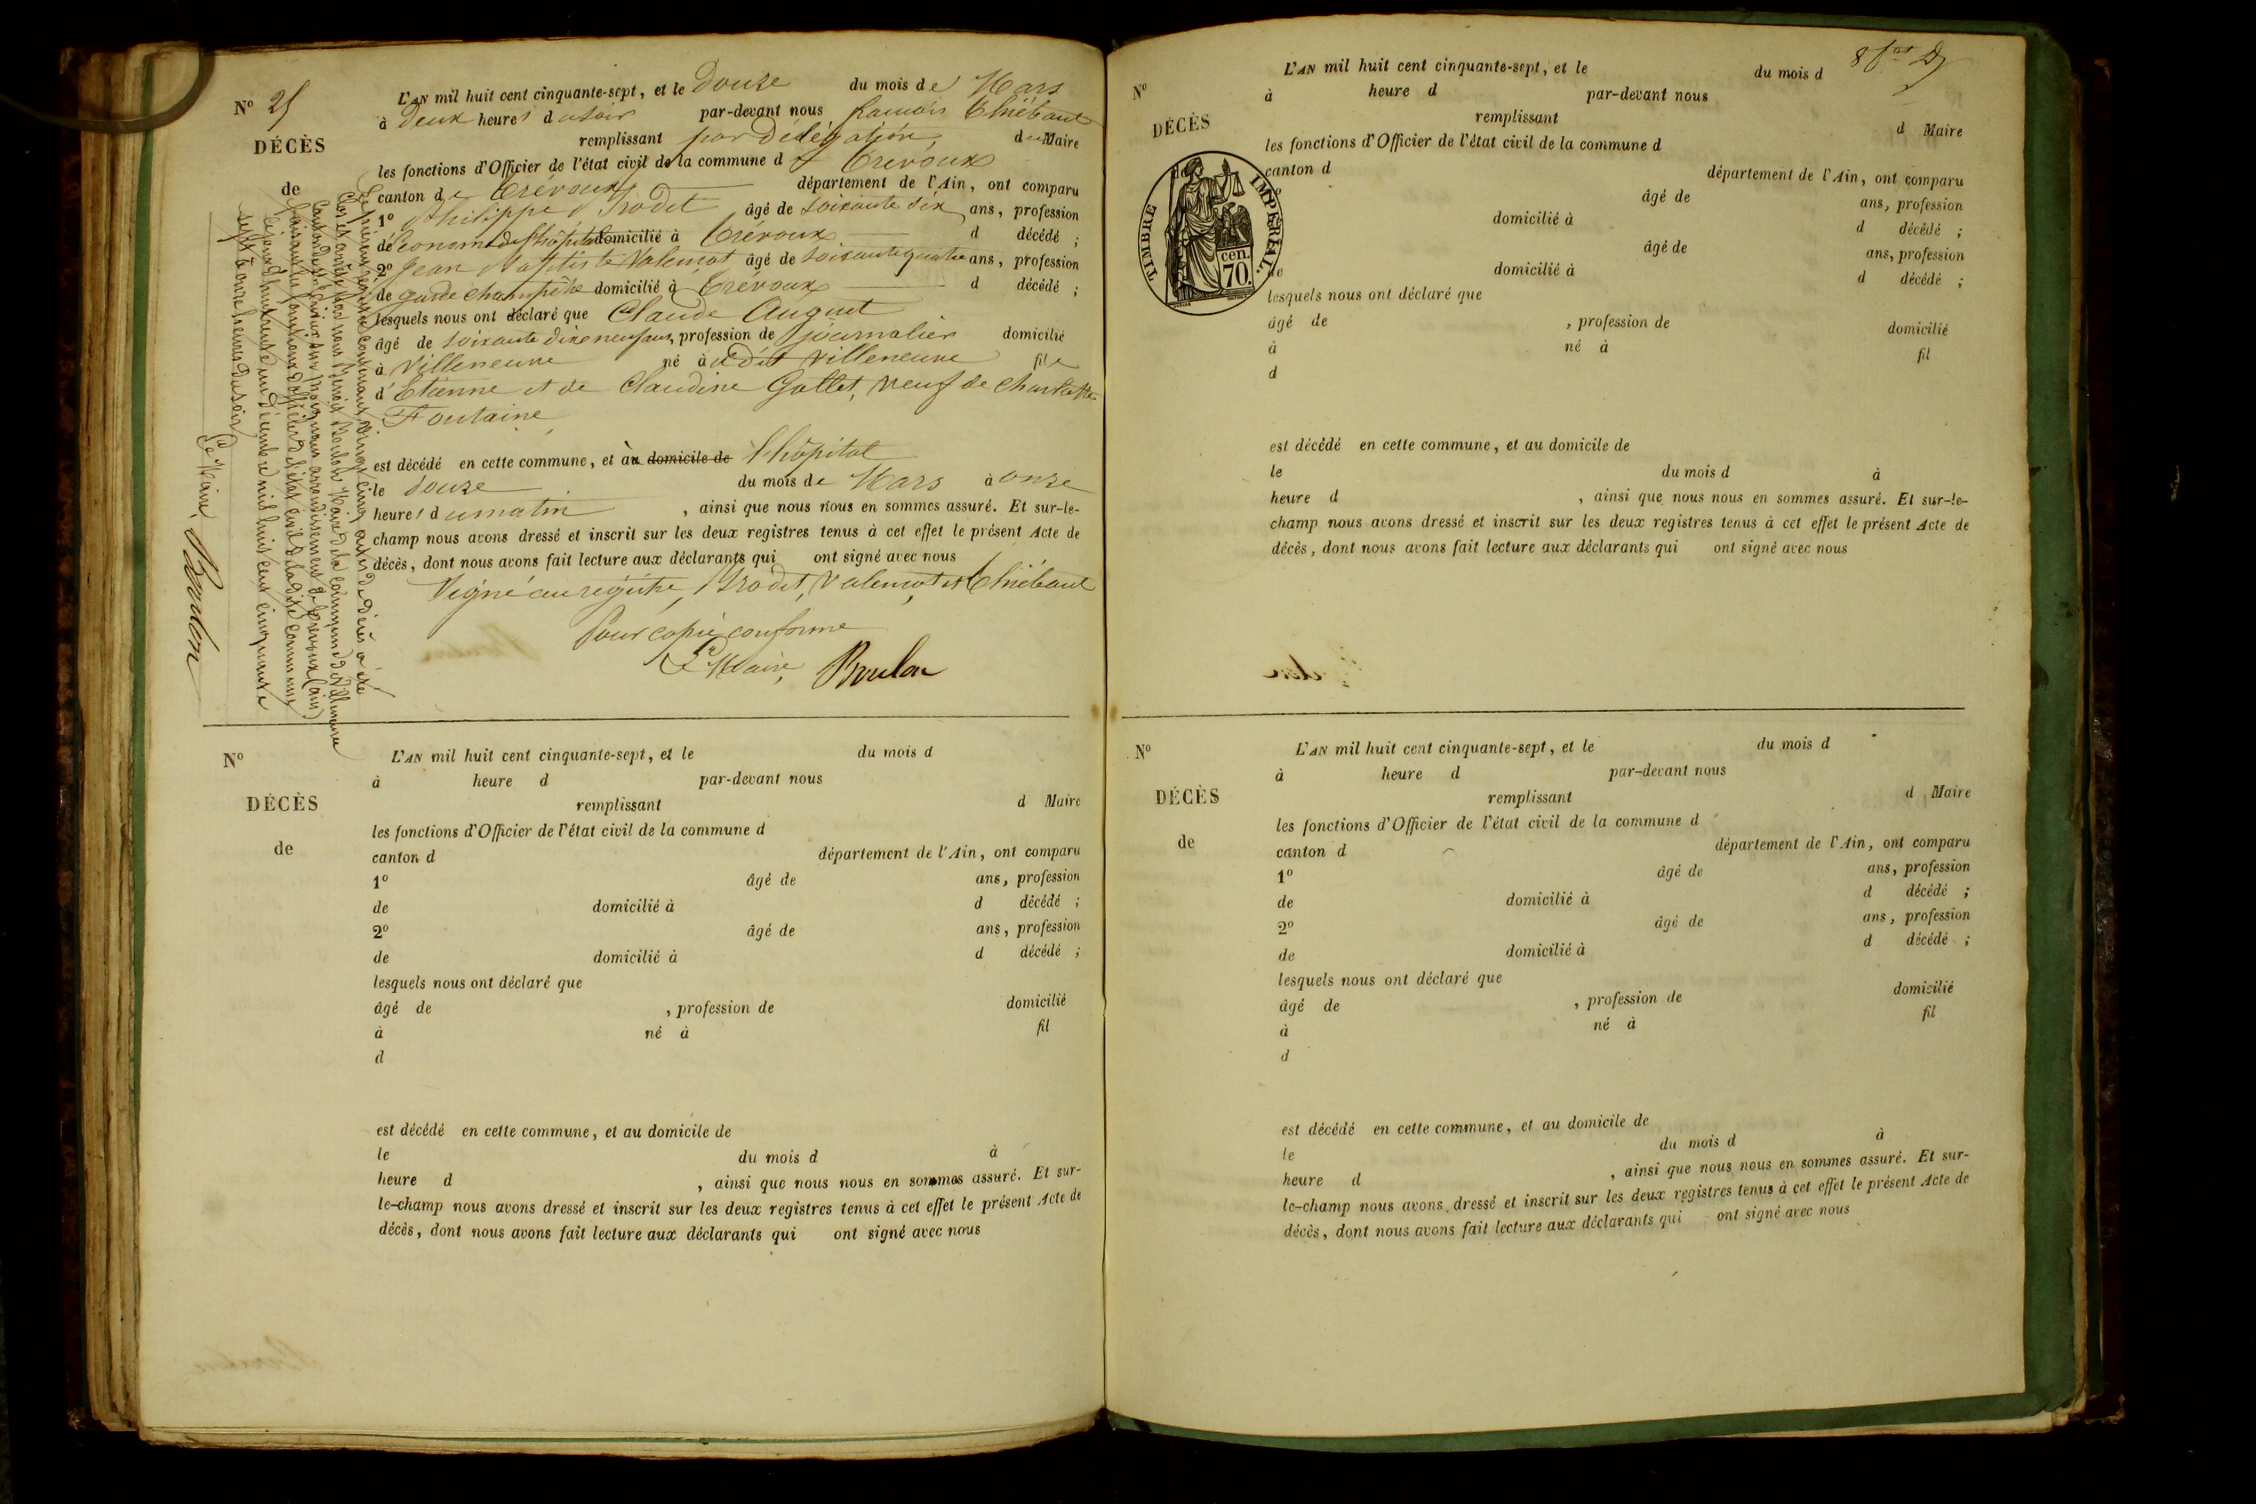 Nº 25
DÉCÈS
de
L'AN mil huit cent cinquante-sept, et le Douze du mois de Mars
à Deux heures du soir par-devant nous Thiébaut
remplissant par Délégation du Maire
les fonctions d'Officier de l'état civil de la commune d Trévoux
canton de Trévoux département de l'Ain, ont comparu
1º Philippe Prodet âgé de soixante dix ans, profession
de Econome de l'hôpital domicilié à Trévoux d décédé ;
2º Jean Baptiste Valençot âgé de soixante quatre ans, profession
de garde champêtre domicilié à Trévoux d décédé ;
lesquels nous ont déclaré que Claude Auguet
âgé de soixante dix neuf ans, profession de journalier domicilié
à Villeneuve né à Villeneuve fils
d'Etienne et de Claudine Gollet, veuf de Charlotte
Fontaine
est décédé en cette commune, et à au domicile de l'hôpital
le douze du mois de Mars à onze
heures du matin , ainsi que nous nous en sommes assuré. Et sur-le-
champ nous avons dressé et inscrit sur les deux registres tenus à cet effet le présent Acte de
décès, dont nous avons fait lecture aux déclarants qui ont signé avec nous
Signé au registre, Prodet, Valençot et Thiébaut
Pour copie conforme
Le Maire, Boulon
Le présent registre contenant vingt cinq actes de décès a été
clos et arrêté par nous Benoit Boulon Maire de la commune de Villeneuve
canton de arrondissement de Trévoux (ain)
faisant les fonctions d'officier de l'état civil de la dite commune
ce jourd'hui trente un Décembre mil huit cent cinquante
sept à onze heures du soir
Le Maire, Boulon
Nº
DÉCÈS
de
L'AN mil huit cent cinquante-sept, et le du mois d
à heure d par-devant nous
remplissant d Maire
les fonctions d'Officier de l'état civil de la commune d
canton d département de l'Ain, ont comparu
1º âgé de ans, profession
de domicilié à d décédé ;
2º âgé de ans, profession
de domicilié à d décédé ;
lesquels nous ont déclaré que
âgé de , profession de domicilié
à né à fil
d
est décédé en cette commune, et au domicile de
le du mois d à
heure d , ainsi que nous nous en sommes assuré. Et sur-
le-champ nous avons dressé et inscrit sur les deux registres tenus à cet effet le présent Acte de
décès, dont nous avons fait lecture aux déclarants qui ont signé avec nous
Nº
DÉCÈS
TIMBRE IMPÉRIAL
70 cen.
L'AN mil huit cent cinquante-sept, et le du mois d
à heure d par-devant nous
remplissant d Maire
les fonctions d'Officier de l'état civil de la commune d
canton d département de l'Ain, ont comparu
âgé de ans, profession
domicilié à d décédé ;
âgé de ans, profession
de domicilié à d décédé ;
lesquels nous ont déclaré que
âgé de , profession de domicilié
à né à fil
d
est décédé en cette commune, et au domicile de
le du mois d à
heure d , ainsi que nous nous en sommes assuré. Et sur-le-
champ nous avons dressé et inscrit sur les deux registres tenus à cet effet le présent Acte de
décès, dont nous avons fait lecture aux déclarants qui ont signé avec nous
Nº
DÉCÈS
de
L'AN mil huit cent cinquante-sept, et le du mois d
à heure d par-devant nous
remplissant d Maire
les fonctions d'Officier de l'état civil de la commune d
canton d département de l'Ain, ont comparu
1º âgé de ans, profession
de domicilié à d décédé ;
2º âgé de ans, profession
de domicilié à d décédé ;
lesquels nous ont déclaré que
âgé de , profession de domicilié
à né à fil
d
est décédé en cette commune, et au domicile de
le du mois d à
heure d , ainsi que nous nous en sommes assuré. Et sur-
le-champ nous avons dressé et inscrit sur les deux registres tenus à cet effet le présent Acte de
décès, dont nous avons fait lecture aux déclarants qui ont signé avec nous